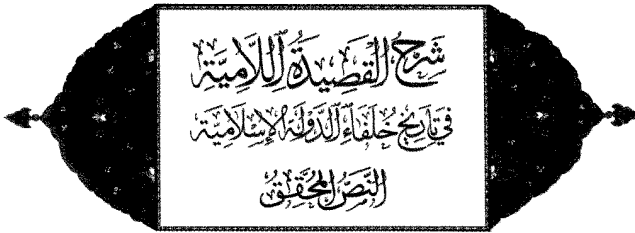 شَرْحُ الْقَصِيدَةِ اللَّامِيَّةِ
فِي تَارِيخِ خُلَفَاءِ الدَّوْلَةِ الْإِسْلَامِيَّةِ
النَّصُّ الْمُحَقَّقُ